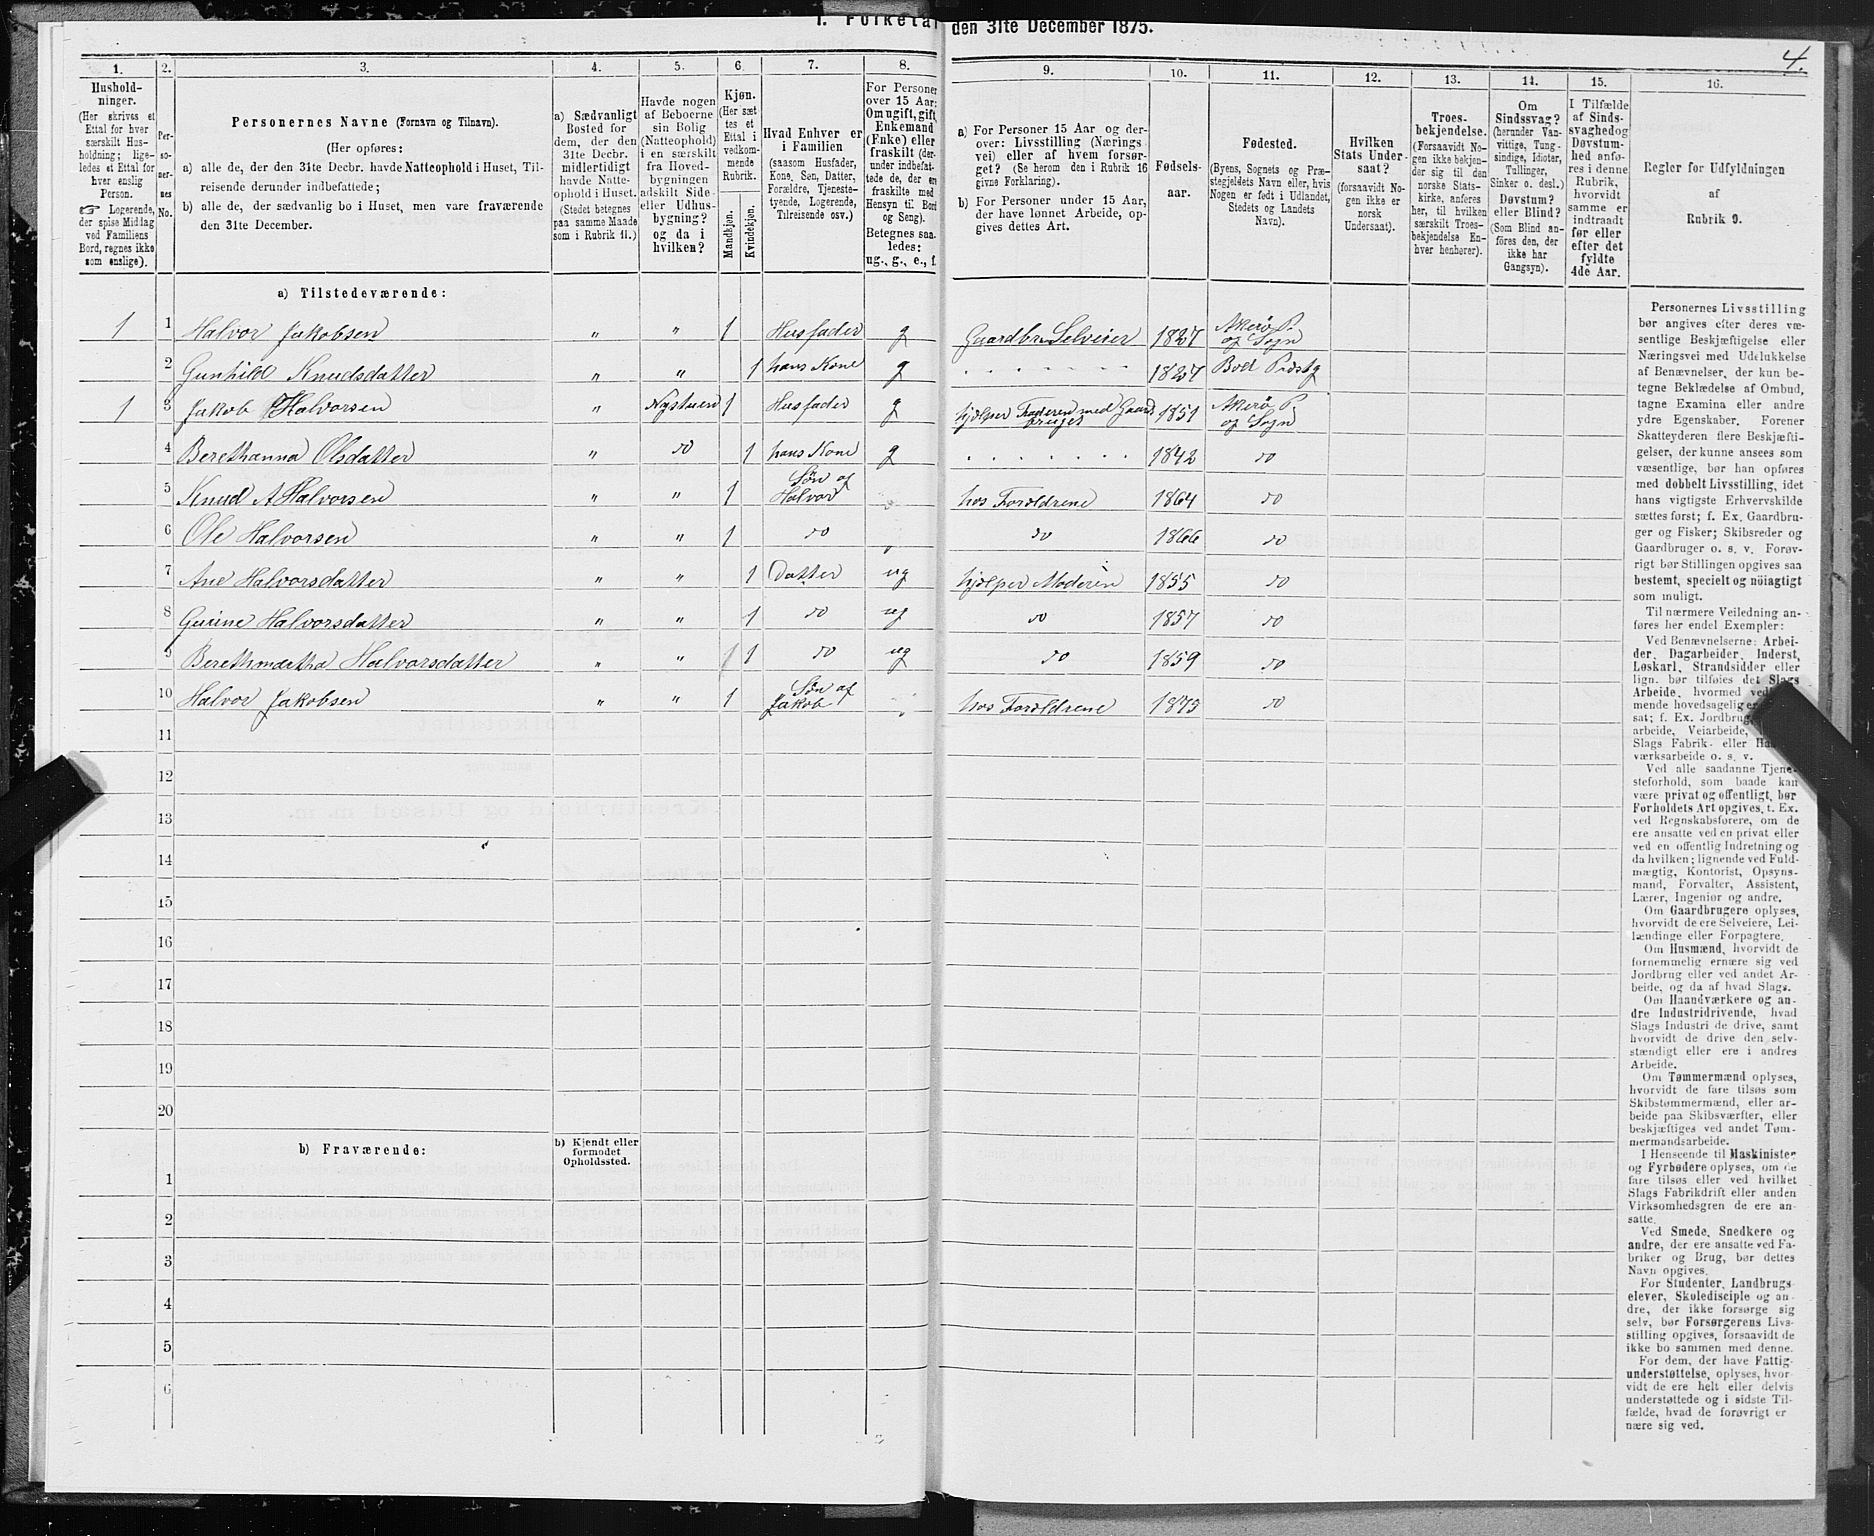 I. Folketal den 31te December 1875.
4.
1. 2. 3. 4. 5. 6. 7. 8. 9. 10. 11. 12. 13. 14. 15. 16.
Hushold-
ninger.
(Her skrives et
Ettal for hver
særskilt Hus-
holdning; lige-
ledes et Ettal for
hver enslig
Person.
☞ Logerende,
der spise Middag
ved Familiens
Bord, regnes ikke
som enslige).
Per-
so-
ner-
nes
No.
Personernes Navne (Fornavn og Tilnavn).
(Her opføres:
a) alle de, der den 31te Decbr. havde Natteophold i Huset, Til-
reisende derunder indbefattede;
b) alle de, der sædvanlig bo i Huset, men vare fraværende
den 31te December.
a) Sædvanligt
Bosted for
dem, der den
31te Decbr.
midlertidigt
havde Natte-
ophold i Huset.
(Stedet betegnes
paa samme Maade
som i Rubrik 11.)
Havde nogen
af Beboerne
sin Bolig
(Natteophold)
i en særskilt
fra Hoved-
bygningen
adskilt Side-
eller Udhus-
bygning?
og da i
hvilken?
Kjøn.
(Her sæt-
tes et
Ettal i
vedkom-
mende
Rubrik.
Mandkjøn.
Kvindekjøn.
Hvad Enhver er
i Familien
(saasom Husfader,
Kone, Søn, Datter,
Forældre, Tjeneste-
tyende, Logerende,
Tilreisende osv.)
For Personer
over 15 Aar:
Om ugift, gift,
Enkemand
(Enke) eller
fraskilt (der-
under indbefat-
tede de, der ere
fraskilte med
Hensyn til Bord
og Seng).
Betegnes saa-
ledes:
ug., g., e., f.
a) For Personer 15 Aar og der-
over: Livsstilling (Nærings-
vei) eller af hvem forsør-
get? (Se herom den i Rubrik 16
givne Forklaring).
b) For Personer under 15 Aar,
der have lønnet Arbeide, op-
gives dettes Art.
Fødsels-
aar.
Fødested.
(Byens, Sognets og Præ-
stegjeldets Navn eller, hvis
Nogen er født i Udlandet,
Stedets og Landets
Navn).
Hvilken
Stats Under-
saat?
(forsaavidt No-
gen ikke er
norsk
Undersaat).
Troes-
bekjendelse.
(Forsaavidt No-
gen ikke bekjen-
der sig til den
norske Stats-
kirke, anføres
her, til hvilken
særskilt Troes-
bekjendelse En-
hver henhører).
Om
Sindssvag?
(herunder Van-
vittige, Tung-
sindige, Idioter,
Tullinger,
Sinker o. desl.)
Døvstum?
eller Blind?
(Som Blind an-
føres den, der
ikke har
Gangsyn).
I Tilfælde
af Sinds-
svaghed og
Døvstum-
hed anfø-
res i denne
Rubrik,
hvorvidt
samme er
indtraadt
før eller
efter det
fyldte
4de Aar.
Regler for Udfyldningen
af
Rubrik 9.
a) Tilstedeværende:
1 1 Halvor Jakobsen " " 1 Husfader g Gaardbr Selveier 1827 Akerø P. og Sogn
2 Gunhild Knudsdatter " " 1 hans Kone g 1827 Bod Præstg
1 3 Jakob Halvorsen " Nystuen 1 Husfader g hjelper Faderen med Gaardsbruget 1851 Akerø P. og Sogn
4 Berethanna Olsdatter " do 1 hans Kone g 1842 do
5 Knud A Halvorsen " " 1 Søn af Halvor hos Foreldrene 1864 do
6 Ole Halvorsen " " 1 do " do 1866 do
7 Ane Halvorsdatter " " 1 Datter ug hjelper Moderen 1855 do
8 Gurine Halvorsdatter " " 1 do ug do 1857 do
9 Berethmartha Halvorsdatter " " 1 do ug do 1859 do
10 Halvor Jakobsen " " 1 Søn af Jakob hos Foreldrene 1873 do
11
12
13
14
15
16
17
18
19
20
b) Fraværende:
b) Kjendt eller
formodet
Opholdssted.
1
2
3
4
5
6
Personernes Livsstilling
bør angives efter deres væ-
sentlige Beskjæftigelse eller
Næringsvei med Udelukkelse
af Benævnelser, der kun be-
tegne Beklædelse af Ombud,
tagne Examina eller andre
ydre Egenskaber. Forener
Skatteyderen flere Beskjæfti-
gelser, der kunne ansees som
væsentlige, bør han opføres
med dobbelt Livsstilling, idet
hans vigtigste Erhvervskilde
sættes først; f. Ex. Gaardbru-
ger og Fisker; Skibsreder og
Gaardbruger o. s. v. Forøv-
rigt bør Stillingen opgives saa
bestemt, specielt og nöiagtigt
som muligt.
Til nærmere Veiledning an-
føres her endel Exempler:
Ved Benævnelserne: Arbei-
der, Dagarbeider, Inderst,
Løskarl, Strandsidder eller
lign. bør tilføies det Slags
Arbeide, hvormed ved-
mende hovedsagelig er
sat; f. Ex. Jordbrug
arbeide, Veiarbeide,
Slags Fabrik- eller Ha
værksarbeide o. s. v.
Ved alle saadanne Tjene-
steforhold, som baade kan
være privat og offentligt, bør
Forholdets Art opgives, t. Ex.
ved Regnskabsførere, om de
ere ansatte ved en privat eller
ved en offentlig Indretning og
da hvilken; lignende ved Fuld-
mægtig, Kontorist, Opsyns-
mand, Forvalter, Assistent,
Lærer, Ingeniør og andre.
Om Gaardbrugere oplyses,
hvorvidt de ere Selveiere, Lei-
lændinge eller Forpagtere.
Om Husmænd, hvorvidt de
fornemmelig ernære sig ved
Jordbrug eller ved andet Ar-
beide, og da af hvad Slags.
Om Haandværkere og an-
dre Industridrivende, hvad
Slags Industri de drive, samt
hvorvidt de drive den selv-
stændigt eller ere i andres
Arbeide.
Om Tømmermænd oplyses,
hvorvidt de fare tilsøs som
Skibstømmermænd, eller ar-
beide paa Skibsværfter, eller
beskjæftiges ved andet Tøm-
mermandsarbeide.
I Henseende til Maskinister
og Fyrbødere oplyses, om de
fare tilsøs eller ved hvilket
Slags Fabrikdrift eller anden
Virksomhedsgren de ere an-
satte.
Ved Smede, Snedkere og
andre, der ere ansatte ved Fa-
briker og Brug, bør dettes
Navn opgives.
For Studenter, Landbrugs-
elever, Skoledisciple og an-
dre, der ikke forsørge sig
selv, bør Forsørgerens Livs-
stilling opgives, forsaavidt de
ikke bo sammen med denne.
For dem, der have Fattig-
understøttelse, oplyses, hvor-
vidt de ere helt eller delvis
understøttede og i sidste Til-
fælde, hvad de forøvrigt er
nære sig ved.